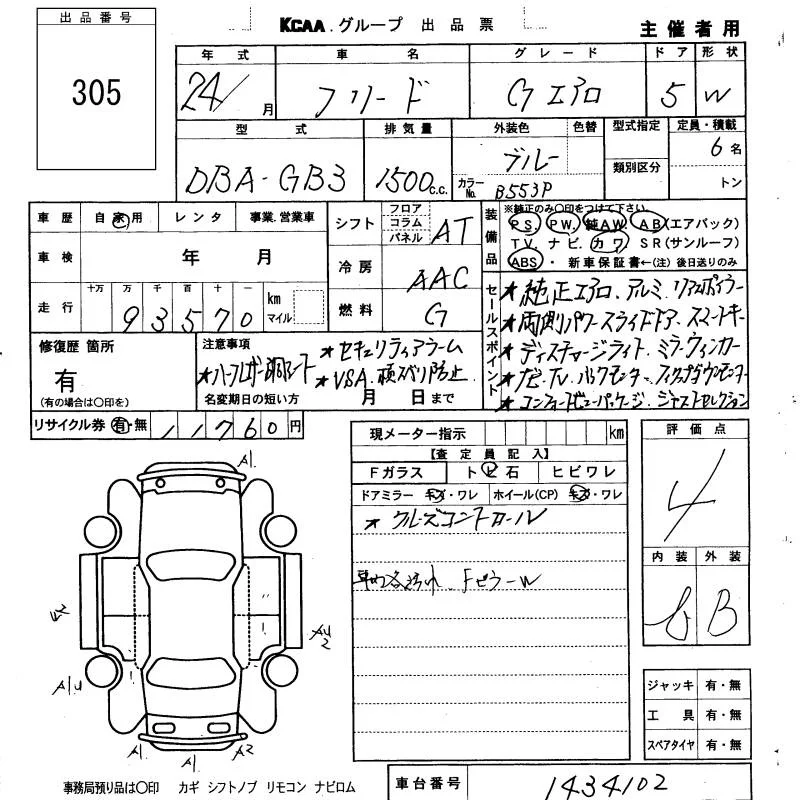 出品番号
305
KCAA.グループ 出品票
主催者用
年式 車名 グレード ドア 形状
24/ 月 フリード Gエアロ 5 W
型式 排気量 外装色 色替 型式指定 定員・積載
DBA-GB3 1500 c.c. ブルー 6 名
カラーNo. B553P 類別区分 トン
車歴 自家用 レンタ 事業.営業車
シフト フロア コラム パネル AT
装備品 ※純正のみ〇印をつけて下さい。
PS. PW. 純AW. AB(エアバック)
TV. ナビ. カワ SR(サンルーフ)
ABS・ 新車保証書←(注)後日送りのみ
車検 年 月
冷房 AAC
走行 十万 万 千 百 十 一
93570 km マイル
燃料 G
セールスポイント
★純正エアロ.アルミ.リアスポイラー
★両側パワースライドドア.スマートキー
★ディスチャージライト.ミラーウィンカー
★ナビ.TV.バックモニター.
★コンフォートビューパッケージ.ジャストセレクション
修復歴 箇所
有
(有の場合は〇印を)
注意事項
★セキュリティアラーム
★ハーフレザー調シート ★VSA.横スベリ防止
名変期日の短い方 月 日まで
リサイクル券 有・無 11760円
現メーター指示 km
【査定員記入】
Fガラス トビ石 ヒビワレ
ドアミラー キズ・ワレ ホイール(CP) キズ・ワレ
★クルーズコントロール
車内各汚れ. FピラーW
評価点
4
内装 外装
B
A1.
A1
A2
A1
ジャッキ 有・無
工具 有・無
スペアタイヤ 有・無
事務局預り品は〇印 カギ シフトノブ リモコン ナビロム
車台番号 1434102